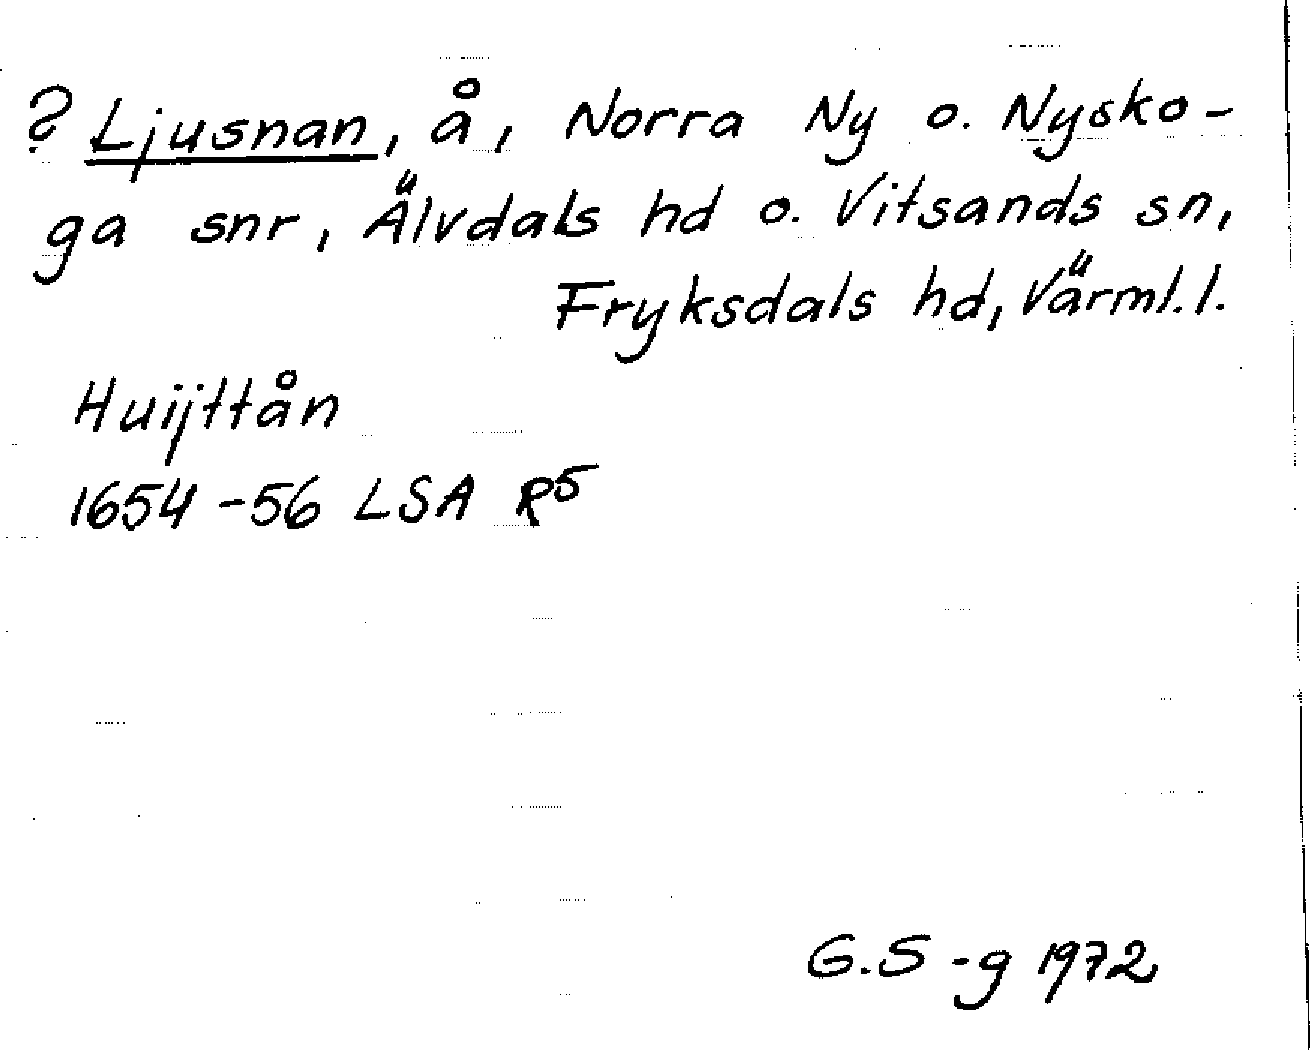 ? Ljusnan, å, Norra Ny o. Nysko-
ga snr, Älvdals hd o. Vitsands sn,
Fryksdals hd, Värml. l.
Huijttån
1654-56 LSA R5
G.S-g 1972